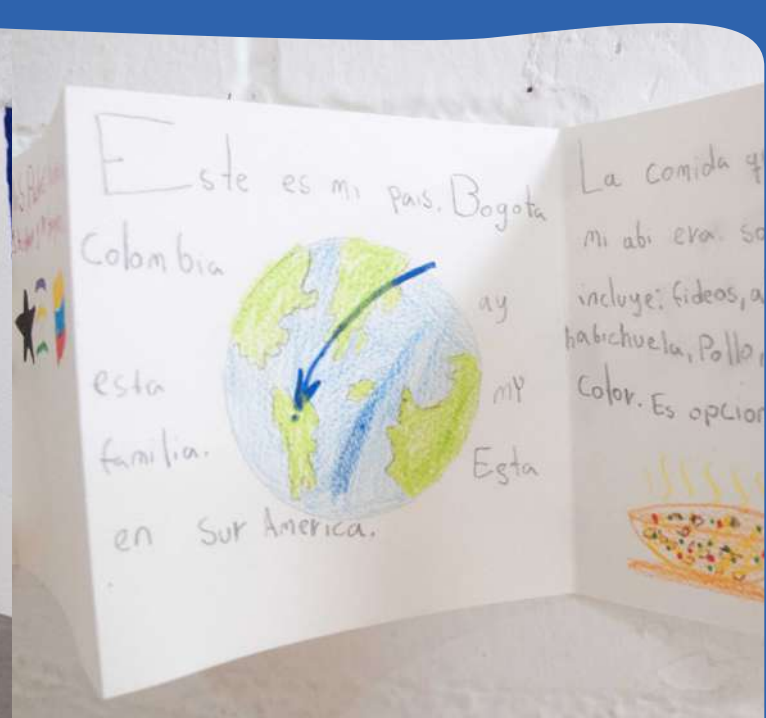 Este es mi pais. Bogota
Colombia
ay
esta my
familia. Esta
en Sur America.
La comida
mi abi era. so
incluye: fideos, a
habichuela, Pollo,
Color. Es opcion